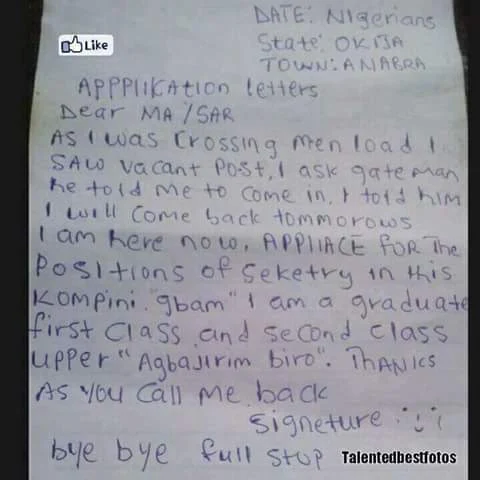 DATE: Nigerians
State: OKIJA
TOWN: ANABRA
Like
APPPlIKAtion letters
Dear MA/SAR
AS I was Crossing men load I
SAW vacant Post, I ask gate man
he told me to come in, I told him
I will Come back tommorows
I am here now, APPlIACE FOR The
Positions of Seketry in this
Kompini. "gbam" I am a graduate
first Class and second class
upper "Agbajirim biro". THANKS
AS YOU Call Me back
Signeture
bye bye full stop
Talentedbestfotos